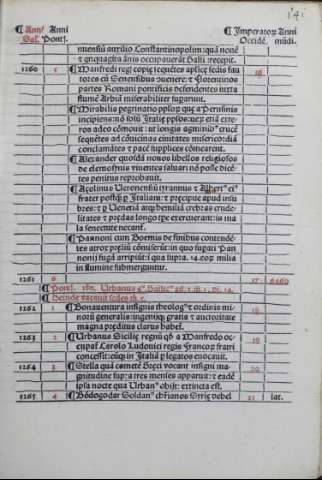 141
¶ Anni ¶ Anni ¶ Imperatoꝝ Anni
Sal. Pont. Occidē. mūdi.
nuensiū auxilio Constantinopolim: quā nouē
⁊ qnquagīta ānis occupauerāt Galli recepit.
1260 5 ¶ Manfredi regi copię seqūetes aplicę sedis fau 16
tores cū Senensibus ⁊ Florentinos
partes Romani pontificis defendentes iuxta
flumē Arbiā miserabiliter fuparunt.
¶ Mirabilis pegrinatio
incipiens: nō solū Italię
teros adeo cōmouit: ut longis agminibꝰ crucē
sequētes ad cōuicinas ciuitates misericordiā
conclamātes ⁊ pacē supplices cōmearent.
¶ Alexander quosdā nouos libellos religiosos
de elemosynis viuentes saluari nō posse dicē
tes penitus reprobauit.
¶ Açolinus Veronensiū tyrannus ⁊ Alberic eiꝰ
frater
bres: ⁊ ꝑ Venetiā crude
litates ⁊ prędas exercuerant: is ma
la senectute necant.
¶ Pannoni cum Boemis de finibus contendē
tes atrox prelių cōmiserūt: in quo supati Pan
nonii fugā arripiūt: ꝗ̄ supra .14. eoꝝ milia
in flumine submerguntur.
1261 6 17 6460
¶ Pont. 180. Urbanus 4ꝰ. Gallicꝰ
¶ Deinde vacauit sedes
1262 1 ¶ Bonauentura insignis theologꝰ ⁊ ordinis mi 18
norū generalis: ingeniiq; gratia ⁊ auctoritate
magna preditus clarus habet.
1263 2 ¶ Urbanus Sicilię regnū a Manfredo oc 19
cupaƭ Carolo Ludouici regis Francoꝝ fratri
concessit: eūq; in Italiā ꝑ legatos euocauit.
1264 3 ¶ Stella quā cometē Gręci vocant insigni ma 20
gnitudine supra tres menses apparuit: ⁊ eadē
ipsa nocte qua Urbanꝰ obijt: extincta est.
1265 4 ¶ Bōdogodar Soldanꝰ chřianos Syrię debel 21 lat.